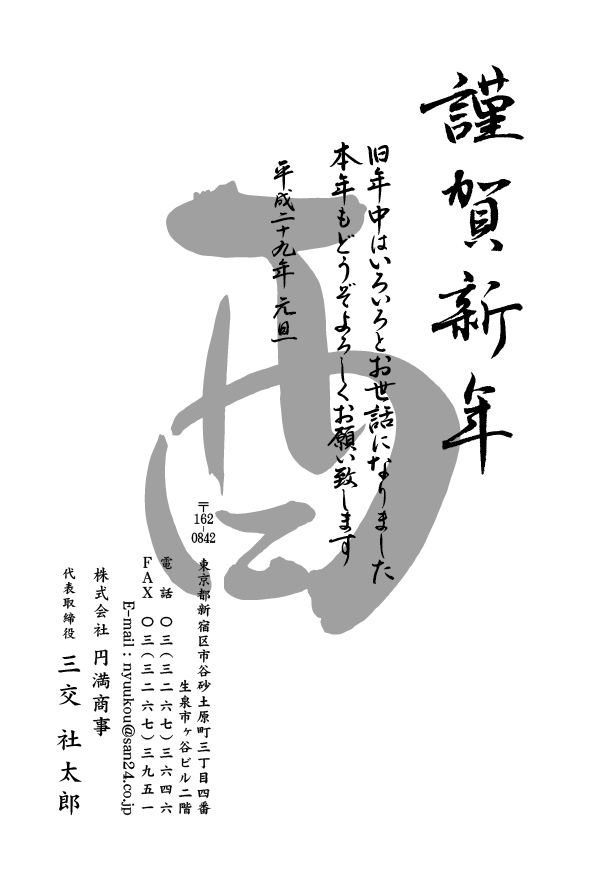 謹賀新年
旧年中はいろいろとお世話になりました
本年もどうぞよろしくお願い致します
平成二十九年 元旦
酉
〒162-0842
東京都新宿区市谷砂土原町三丁目四番
生泉市ヶ谷ビル二階
電話 〇三(三二六七)三六四六
FAX 〇三(三二六七)三九五一
E-mail : nyuukou@san24.co.jp
株式会社 円満商事
代表取締役 三交 社太郎